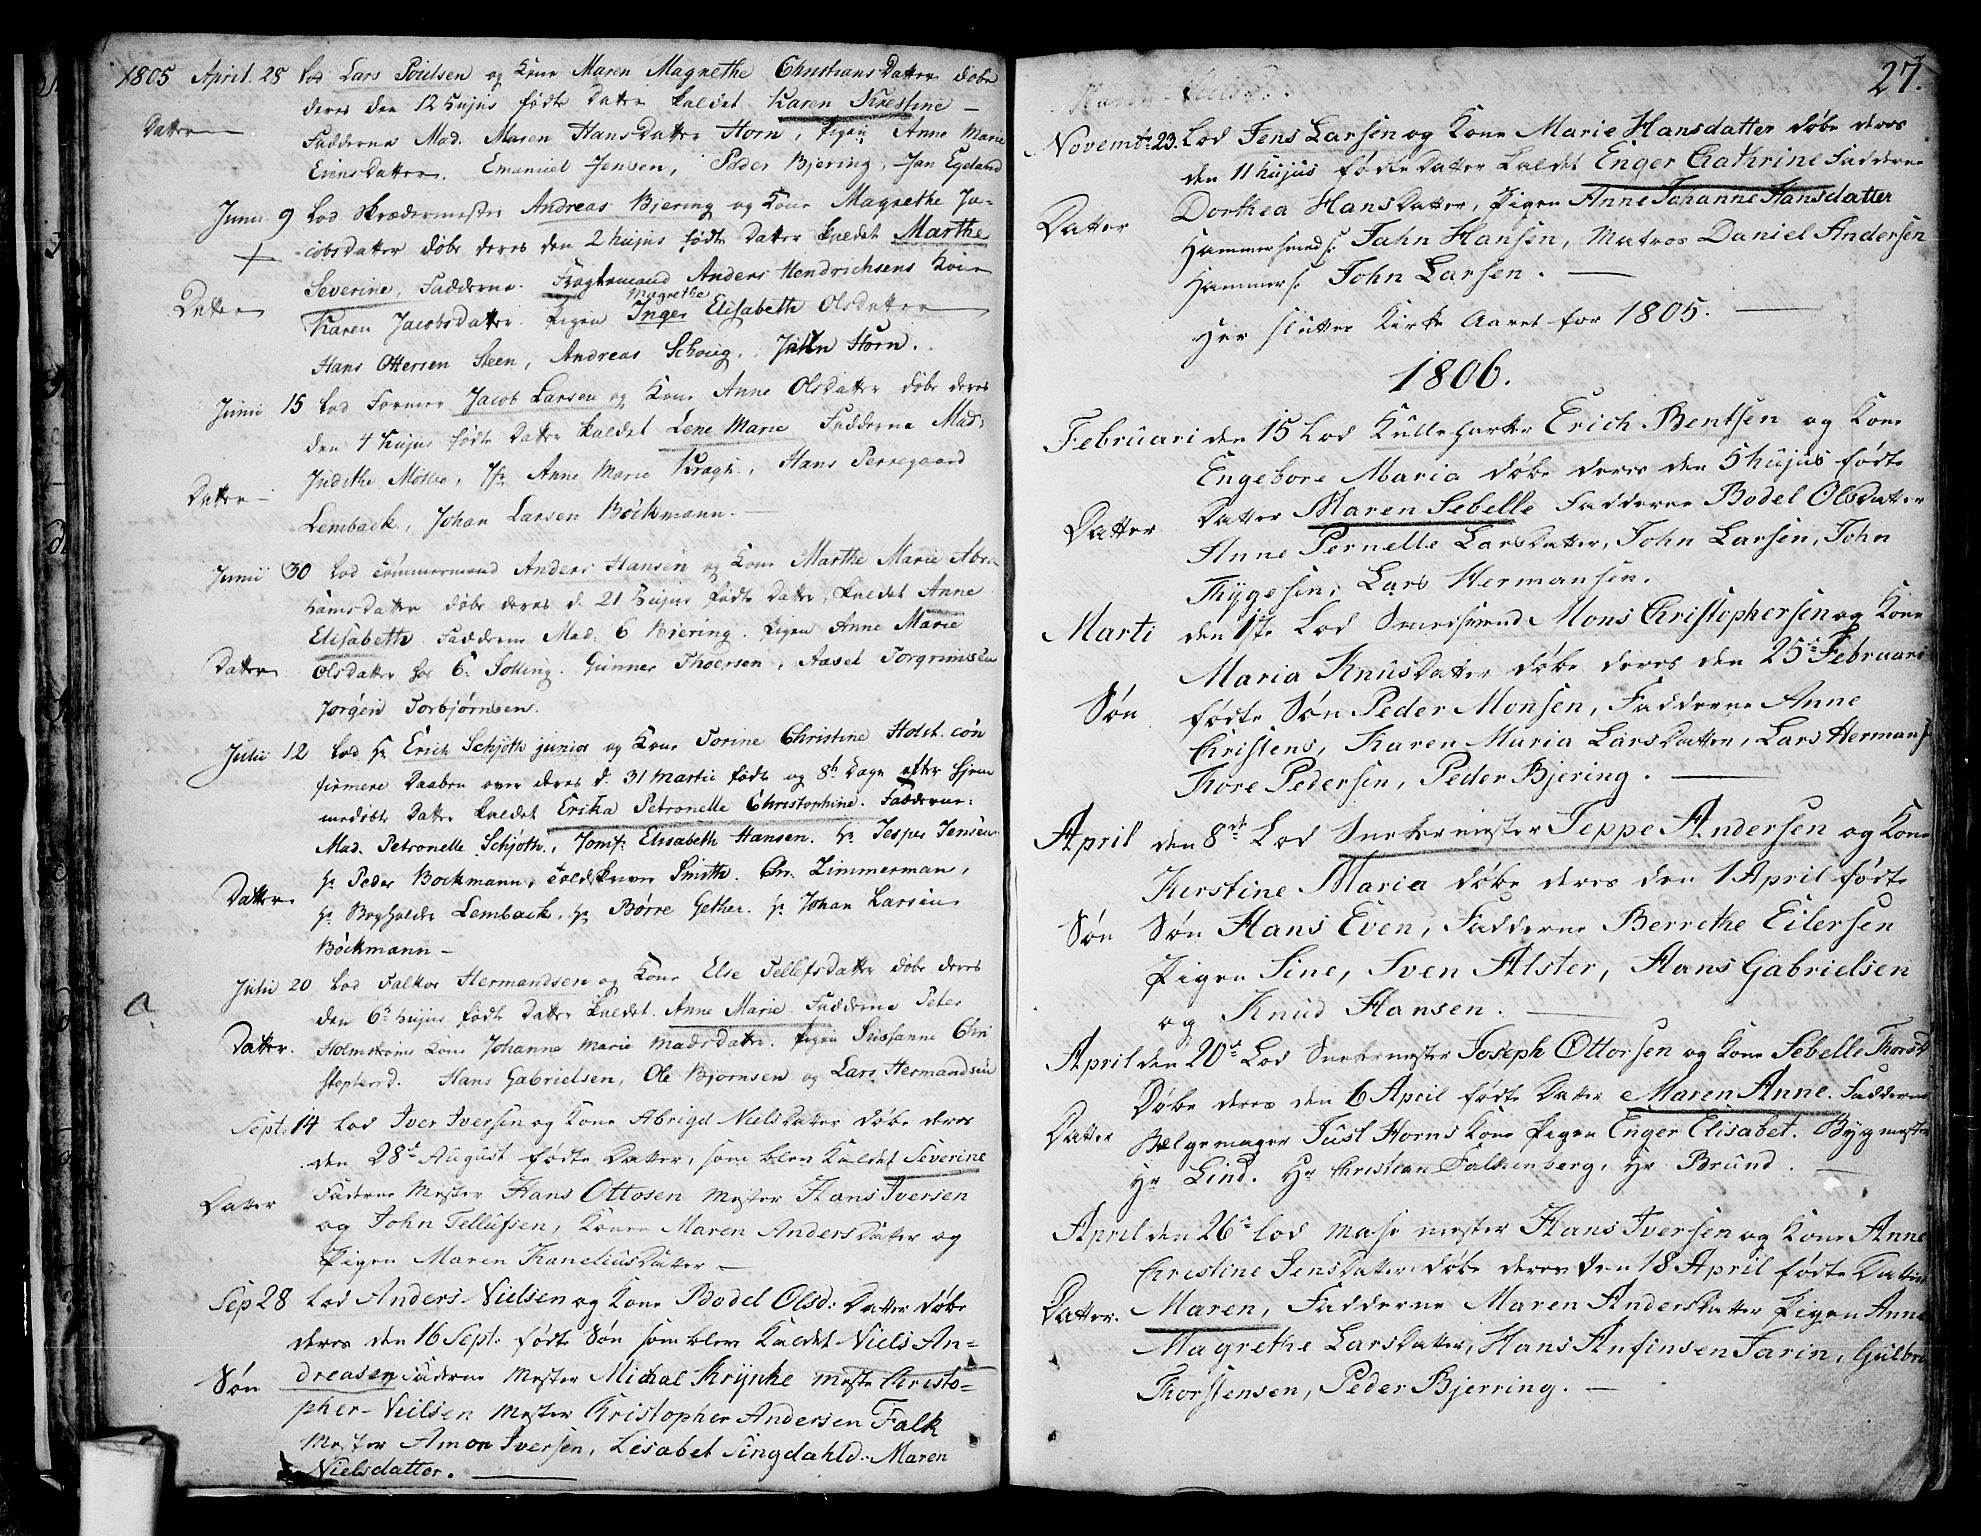 1805 April. 28 Lod Lars Poulsen og Kone Maren Magrethe ChristiansDatter døbe
deres den 12 hujus fødte Datter kaldet Karen Kirstine –
Datter
Fadderne Mad. Maren Hansdatter Horn, Pigen Anne Marie
EvensDatter, Emanuel Jensen, Peder Bjering, Jan Egeland
Junii 9 Lod Skrædermester Andreas Bjering og Kone Magrethe Ja-
cobsdatter døbe deres den 2 hujus født Datter kaldet Marthe
Severine, Fadderne Fragtemand Anders Hendrichsens Kone
Datter
Magrethe
Karen Jacobsdatter. Pigen Inger Elisabeth Olsdatter
Hans Ottersen Steen, Andreas Schoug, John Horn.
Junii 15 Lod Former Jacob Larsen og Kone Anne Olsdatter døbe deres
den 4 hujus født Datter kaldet Lene Marie Fadderne Mad.
Judithe Møller, Jfr Anne Marie Kragh, Hans Perregaard
Datter
Lemback, Johan Larsen Böckmann. –
Junii 30 Lod Tømmermand Anders Hansen og Kone Marthe Marie Abra
hamsDatter døbe deres d. 21 hujus født Datter, kaldet Anne
Elisabeth Fadderne Mad: Bjering. Pigen Anne Marie
Datter Olsdatter hos Solling. Gunner Thoersen, Aasel Torgrimsen
Jørgen Torbjørnsen.
Julii 12 Lod Hr Erich Schjøth junior og Kone Torine Christine Holst con
firmere Daaben over deres d. 31 Martii fødte og 8de Dagen efter hjem
medøbte Datter kaldet Erika Petronelle Christophine. Fadderne:
Mad. Petronelle Schjøth, Jomf: Elisabeth Hansen. Hr Jesper Jensen
Datter Hr Peder Bockmann, Toldskriver Smith. Chr. Zimmerman,
Hr Bogholder Lemback, Hr Børre Gether. Hr Johan Larsen
Böckmann –
Julii 20 Lod Falkor Hermandsen og Kone Else Tellefsdatter døbe deres
a. den 6te hujus født Datter kaldet Anne Marie. Fadderne Peter
Datter. Holmstrøms Kone Johanne Marie Madsdatter. Pigen Sussanne Chri
stophersd. Hans Gabrielsen, Ole Bjørnsen og Lars Hermandsen
Sept. 14 Lod Iver Iversen og Kone Abrigd NielsDatter døbe deres
den 28de August fødte Datter, som blev kaldet Severine
Datter
Faderne Mester Hans Ottosen Mester Hans Iversen
og John Tellufsen, Konen Maren AndersDatter og
Pigen Maren KaneliusDatter –
Sep 28 Lod Anders Nielsen og Kone Bodel Olsd: Datter døbe
deres den 16 Sept: fødte Søn som blev kaldet Niels An-
Søn dreasen Faderne Mester Michal Krynke Mester Christo-
pher Nielsen Mester Christopher Andersen Falk
Mester Amon Iversen, Lisabet Singdahld. Maren
Nielsdatter.
27.
Novembr 23. Lod Jens Larsen og Kone Marie Hansdatter døbe deres
den 11 hujus fødte Datter kaldet Enger Cathrine Fadderne
Datter
Dorthea HansDatter, Pigen Anne Johanne Hansdatter
Hammersmeds: Jahn Hansen, Matros Daniel Andersen
Hammers: John Larsen. –
Her slutter Kirke Aaret for 1805.
1806.
Februari den 15 Lod Kulleharker Erich Bentsen og Kone
Engebore Maria døbe deres den 5 hujus fødte
Datter Datter Maren Sebelle Fadderne Bodel Olsdatter
Anne Pernelle LarsDatter, John Larsen, John
Thygesen, Lars Hermansen.
Marti den 1ste Lod Smedsvend Mons Christophersen og Kone
Maria KnusDatter døbe deres den 25de Februari
Søn fødte Søn Peder Monsen, Fadderne Anne
Christens, Karen Maria LarsDatter, Lars Hermans
Thore Pedersen, Peder Bjering.
April den 8de Lod Snekermester Jeppe Andersen og Kone
Kerstine Maria døbe deres den 1 April fødte
Søn Søn Hans Even, Fadderne Berrethe Eilersen
Pigen Sine, Sven Alster, Hans Gabrielsen
og Knud Hansen.
April den 20de Lod Snekermester Joseph Ottorsen og Kone Sebelle Thorsd
Døbe deres den 6 April fødte Dater Maren Anne. Fadderne
Datter Belgemager Just Horns Kone Pigen Enger Elisabet. Bygmester
Hr Lind. Hr Christian Falkenberg, Hr Brund.
April den 26de Lod Mas. mester Hans Iversen og Kone Anne
Christine JensDatter døbe deres den 18 April fødte Datter
Datter. Maren, Fadderne Maren AndersDatter Pigen Anne
Magrethe LarsDatter, Hans Anfinsen Tarin, Gulbra
Thorstensen, Peder Bjerring. –